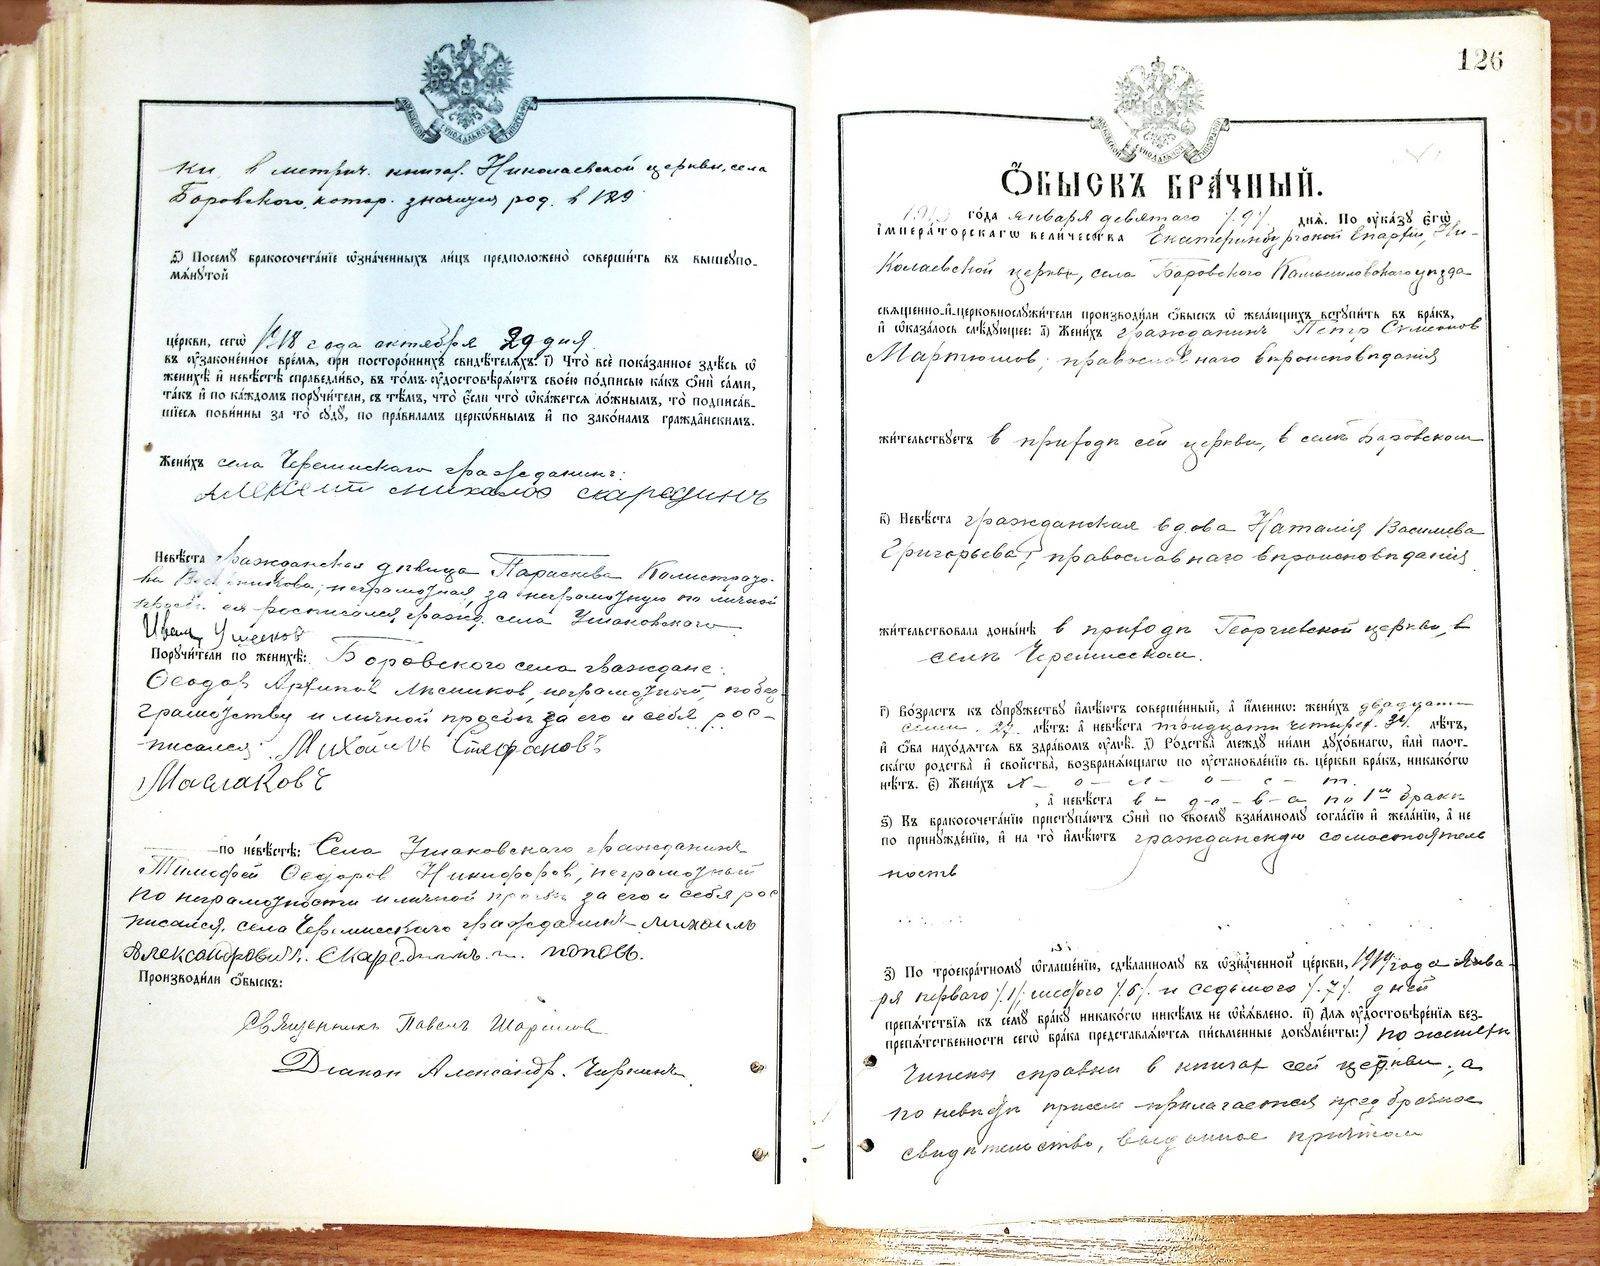 ки, в метрич. книгах Николаевской церкви, села
Боровского, котор. значится род. в 189
Посему бракосочетанїе ѡзначенныхъ лицъ предположено совершить въ вышеупо-
мѧнутой
церкви, сегѡ 1918 года октября 29 дня
въ оузаконенное времѧ, при постороннихъ свидѣтелѧхъ. і) Что всѐ показанное здѣсь ѡ
женихѣ и невѣстѣ справедливо, въ томъ оудостовѣрѧютъ своею подписью какъ ѻни сами,
такъ и по каждомъ поручители, съ тѣмъ, что если что ѡкажется ложнымъ, то подписав-
шїесѧ повинны за то суду, по правиламъ церкѡвнымъ и по законамъ гражданскимъ.
Женихъ села Черемисскаго гражданинъ:
Алексей Михаловъ Скарединъ
Невѣста гражданская дѣвица Параскева Калистрато-
ва неграмотная, за неграмотную по личной
просьбѣ ея росписался гражд. села Ушаковскаго
Иванъ Ушаков
Поручители по женихѣ: Боровского села граждане:
Ѳеодоръ Архипов Лѣсников, неграмотный, по без-
грамотству и личной просьбѣ за его и себя рос-
писался: Михаилъ Стефановъ
Маслаковъ
по невѣстѣ: Села Ушаковскаго гражданинъ
Тимофей Ѳедоров Никифоров, неграмотный
по неграмотности и личной просьбѣ за его и себя рос
писался, села Черемисского гражданинъ Михаилъ
Александровичъ Скарединъ
Производили ѻбыскъ:
Священникъ Павелъ
Диакон Александръ Чиркинъ
126
Ѻбыскъ брачный.
года января девятаго /9/ днѧ. По оуказу Єгѡ
Императорскагѡ величества Екатеринбургской Епархіи, Ни-
колаевской церкви, села Боровского Камышловского уѣзда
свѧщенно-и-церковнослужители производили ѻбыскъ ѡ желающихъ вступить въ бракъ,
и ѡказалось слѣдующее: а) Женихъ гражданинъ Петръ Симеонов
Мартюшов, православнаго вѣроисповѣдания
жительствуетъ в приходѣ сей церкви, в селѣ Боровском
в) Невѣста гражданская вдова Наталія Васильева
Григорьева, православнаго вѣроисповѣданія
жительствовала донынѣ в приходѣ Георгіевской церкви, в
селѣ Черемисском.
г) Возрастъ къ супружеству имѣютъ совершенный, а именно: женихъ двадцати
семи .27. лѣтъ: а невѣста тридцати четырех .34. лѣтъ,
и ѻба находѧтсѧ въ здравомъ оумѣ. д) Родства между ними духовнагѡ, или плот-
скагѡ родства и свойства, возбранѧющагѡ по оустановленїю св. церкви бракъ, никакогѡ
нѣтъ. є) Женихъ х - о - л - о - с - т.
, а невѣста в - д - о - в - а по 1м бракѣ
ѕ) Къ бракосочетанїю приступаютъ ѻни по своему взаимному согласїю и желанїю, а не
по принужденїю, и на то имѣютъ гражданскую самостоятель
ность
з) По троекратному ѡглашенїю, сдѣланному въ ѡзначенной церкви, 1919 года Янва-
ря перваго /1/, шестого /6/ и седьмого /7/ дней
препѧтствїѧ къ сему браку никакогѡ никѣмъ не ѡбъѧвлено. и) Для оудостовѣренїѧ без-
препѧтственности сегѡ брака представлѧютсѧ письменные документы: по жениху
учинены справки в книгах сей церкви, а
по невѣстѣ присем прилагается предбрачное
свидѣтельство, выданное причтом